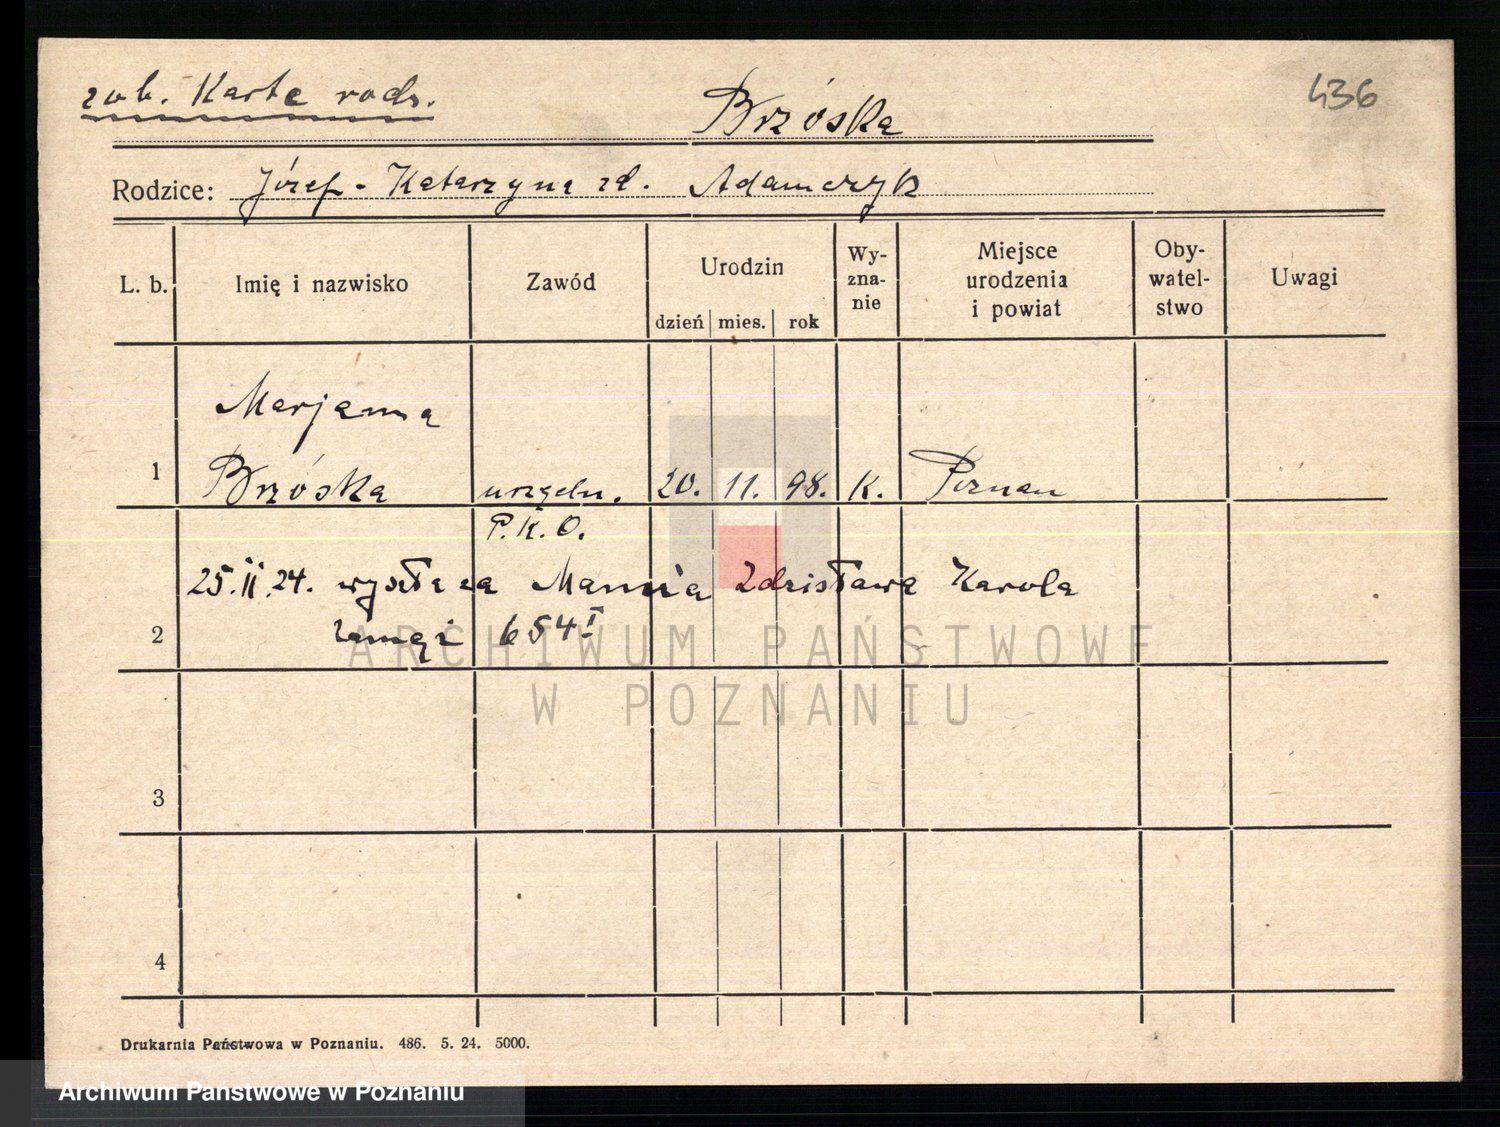 zob. Karte rodz.
Brzóska
436
Rodzice: Józef - Katarzyna zd. Adamczyk
L. b. Imię i nazwisko Zawód Urodzin Wy-zna-nie Miejsce urodzenia i powiat Oby-watel-stwo Uwagi
dzień mies. rok
Marjanna
1 Brzóska urzędn. 20. 11. 98. K. Poznań
P.K.O.
25.II.24. wyszła za Zdzisława Karola
2 zamąż 654 I
ARCHIWUM PAŃSTWOWE
W POZNANIU
3
4
Drukarnia Państwowa w Poznaniu. 486. 5. 24. 5000.
Archiwum Państwowe w Poznaniu